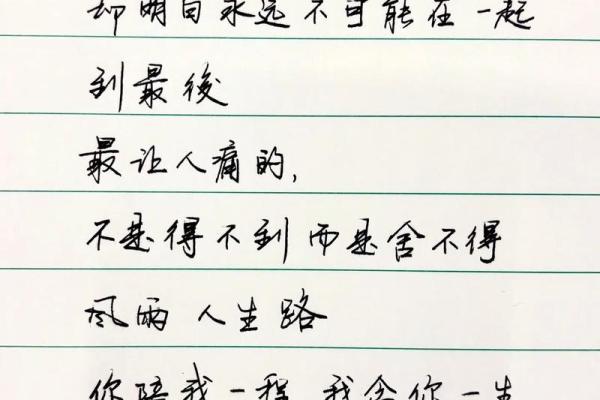 却明白永远不可能在一起
到最後
最让人痛的,
不是得不到而是舍不得
风雨人生路
你陪我一程 我念你一生